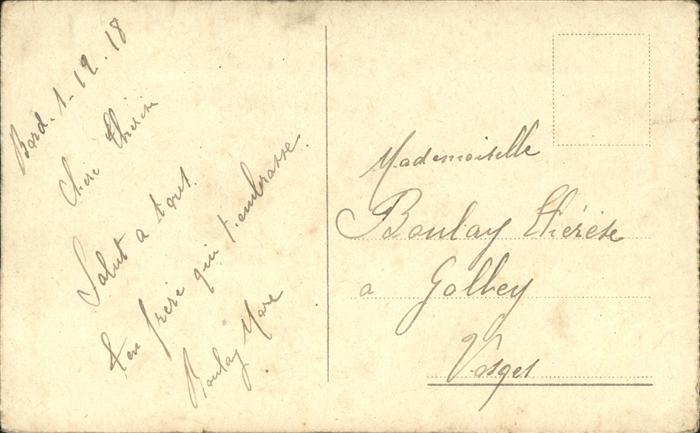 Bord. 1-12.18
Chère Thérèse
Salut a tous.
ton frère qui t'embrasse.
Boulay Marc
Mademoiselle
Boulay Thérèse
a Golbey
Vosges